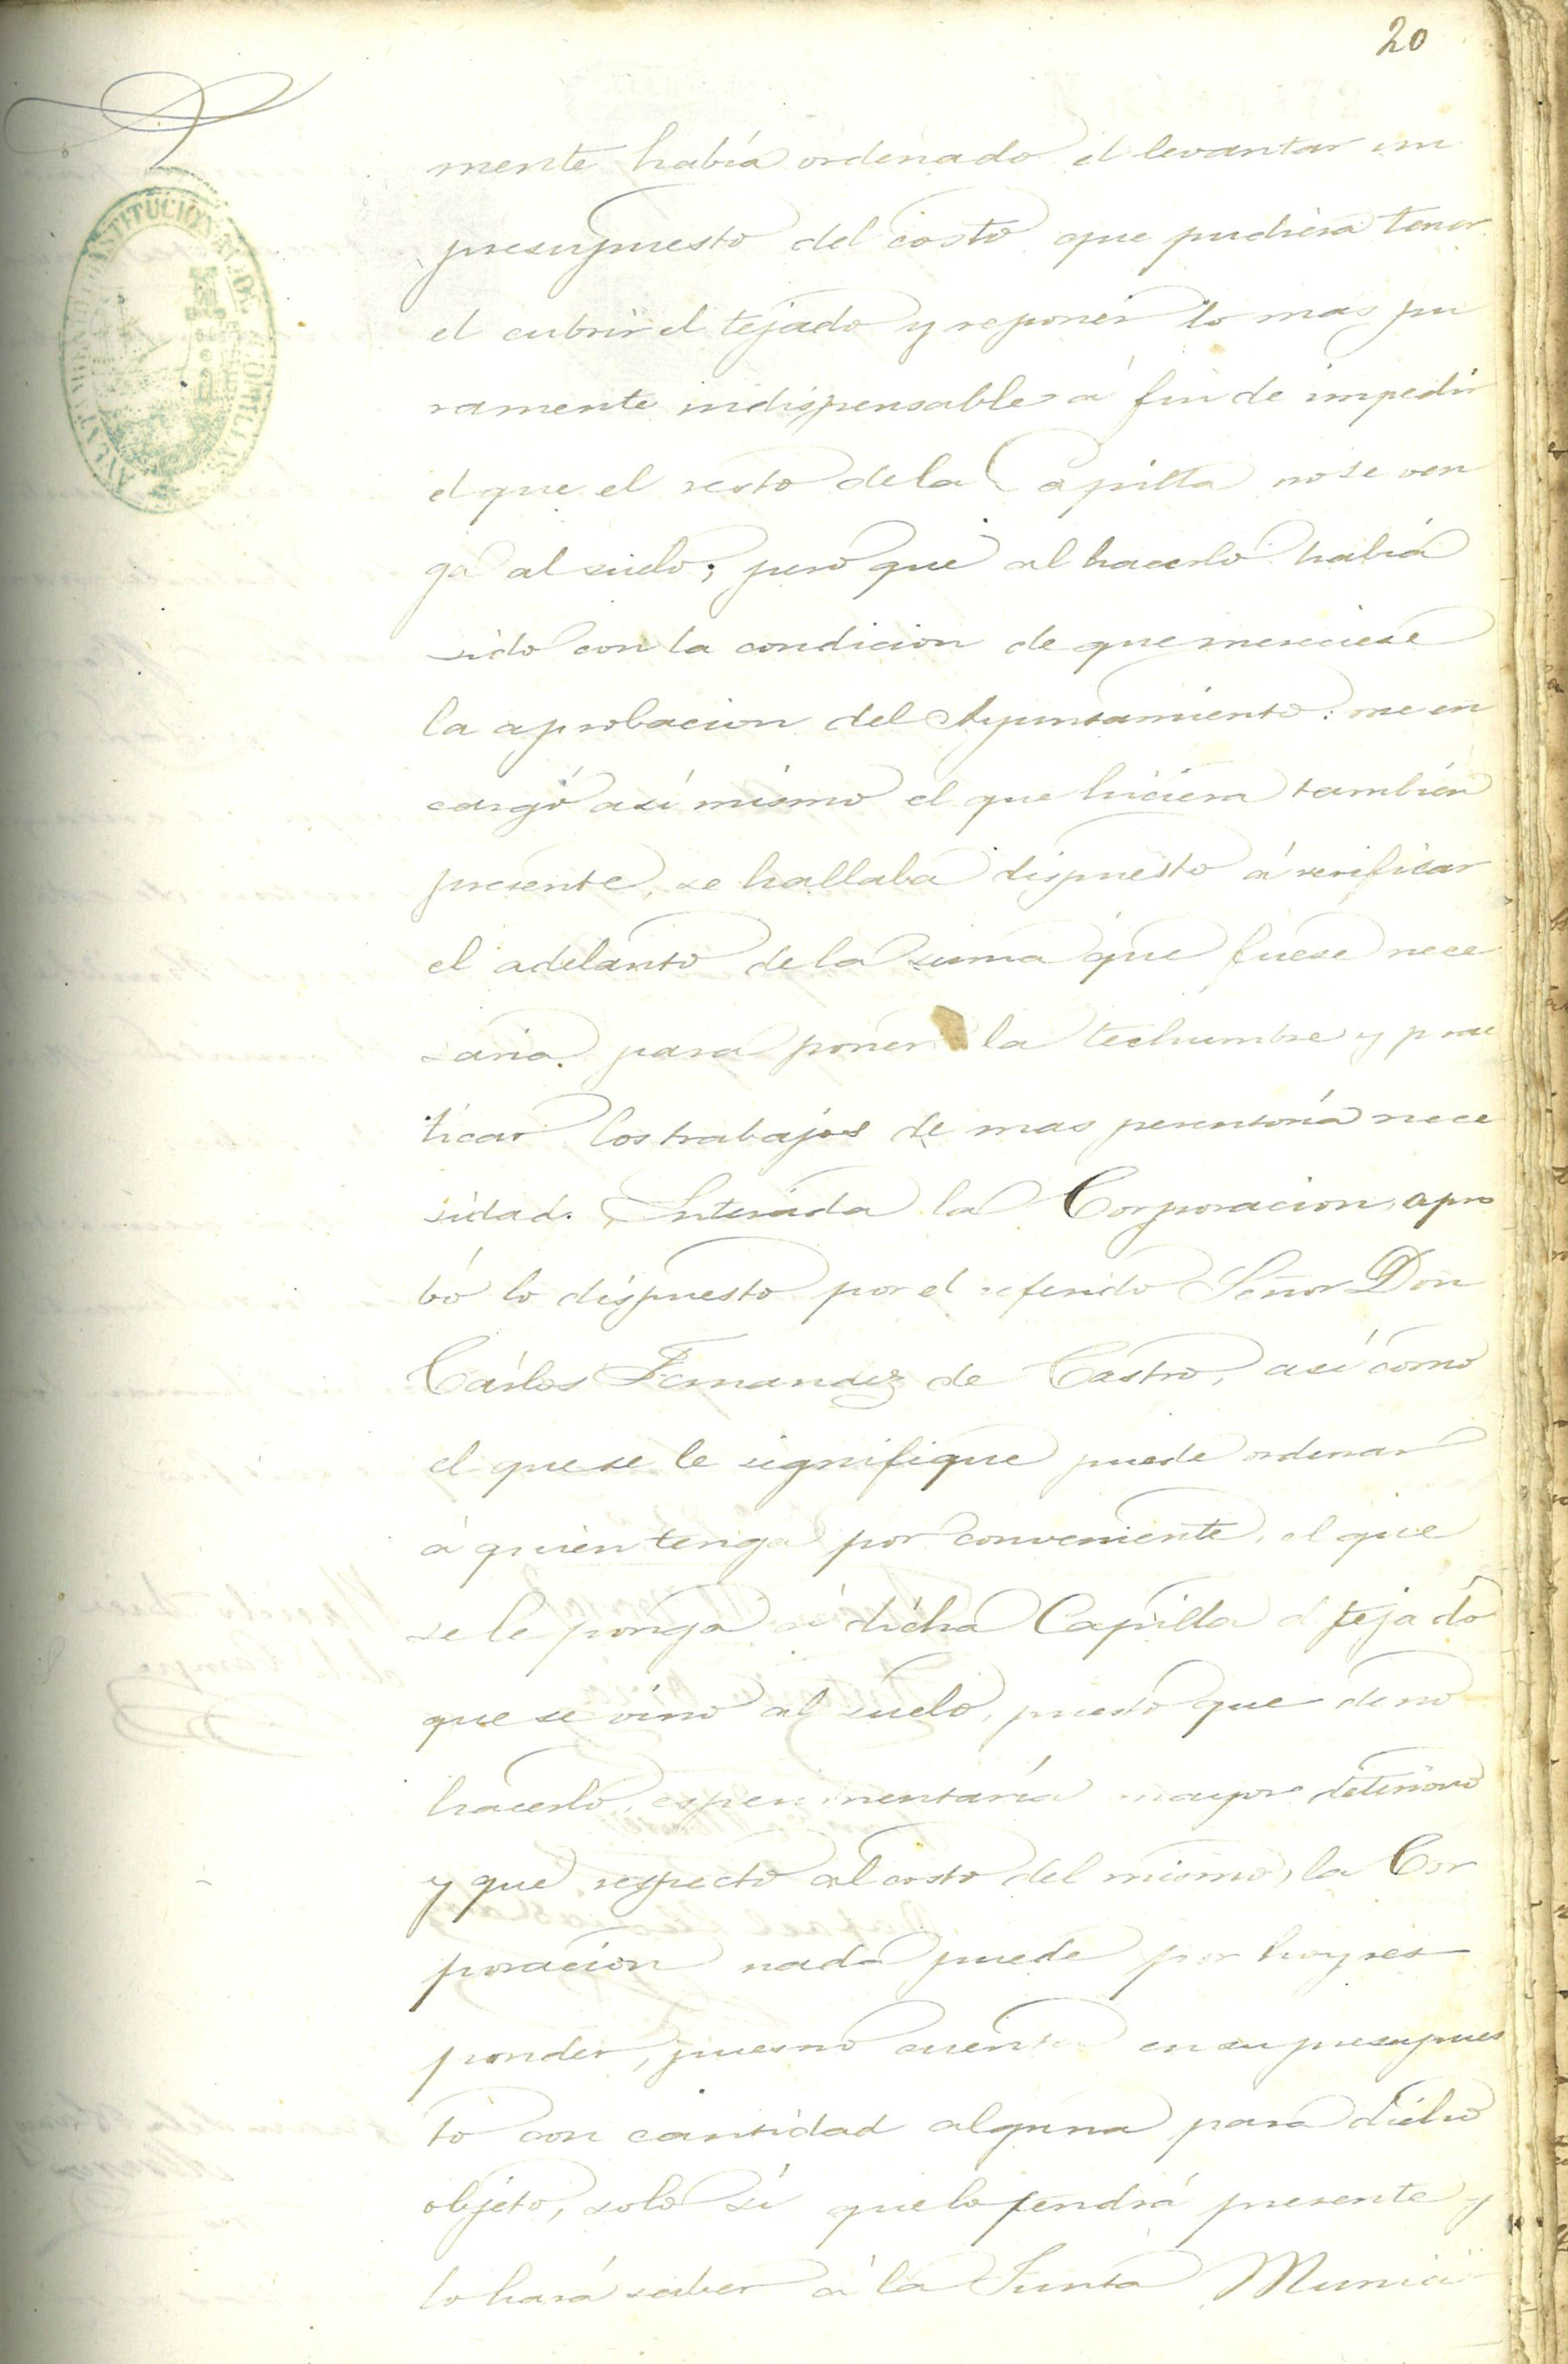 20
AYUNTAMIENTO CONSTITUCIONAL DE COMILLAS
mente había ordenado el levantar un
presupuesto del costo que pudiera tener
el cubrir el tejado y reponer lo mas pu
ramente indispensable á fin de impedir
el que el resto de la Capilla no se ven
ga al suelo; pero que al hacerlo habia
sido con la condicion de que mereciese
la aprobacion del Ayuntamiento: me en
cargó así mismo el que hiciera también
presente, se hallaba dispuesto á verificar
el adelanto de la suma que fuese nece
saria para poner la techumbre y prac
ticar los trabajos de mas perentoria nece
sidad. Enterada la Corporacion, apro
bó lo dispuesto por el referido Señor Don
Cárlos Fernandez de Castro, así como
el que se le signifique puede ordenar
á quien tenga por conveniente, el que
se le ponga á dicha Capilla el tejado
que se vino al suelo, puesto que de no
hacerlo, esperimentaría mayor deterioro
y que respecto al costo del mismo, la Cor
poracion nada puede por hoy res
ponder, pues no cuenta en su presupues
to con cantidad alguna para dicho
objeto, solo sí que lo tendrá presente y
lo hará saber á la Junta Munici